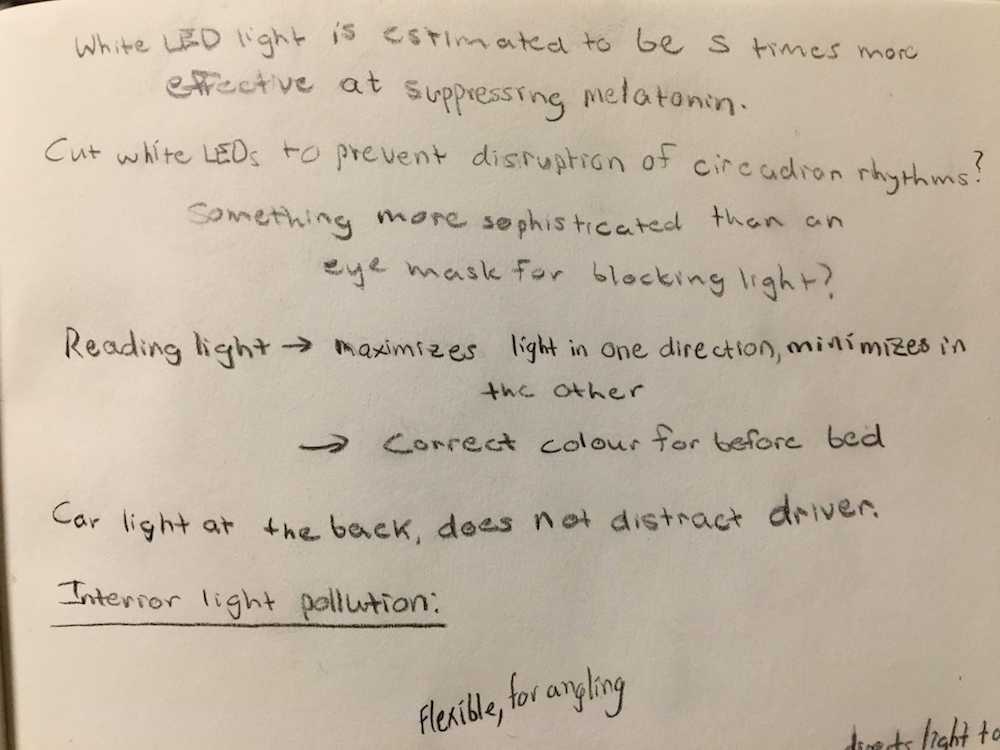 White LED light is estimated to be 5 times more
effective at suppressing melatonin.
Cut white LEDs to prevent disruption of circadian rhythms?
Something more sophisticated than an
eye mask for blocking light?
Reading light → maximizes light in one direction, minimizes in
the other
→ Correct colour for before bed
Car light at the back, does not distract driver.
Interior light pollution:
Flexible, for angling
light to